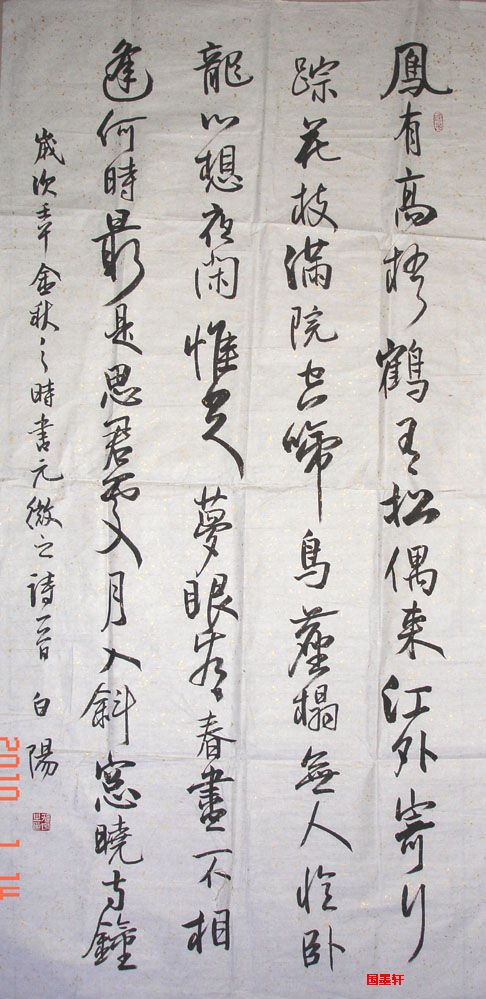 鳳有高梧鶴有松偶来江外寄行
踪花枝滿院空啼鳥塵榻無人憶卧
龍心想夜閑惟足夢眼看春盡不相
逢何時最是思君處月入斜窓曉寺鐘
歲次壬午金秋之時書元微之詩一首 白陽
2010 1 14
国墨轩